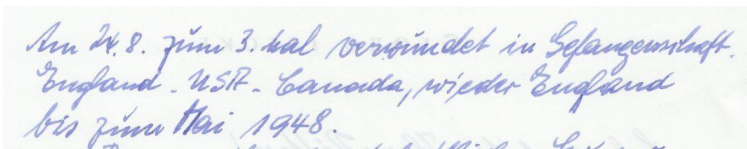 Am 24. 8. zum 3. mal verwundet in Gefangenschaft.
England - USA - Canada, wieder England
bis zum Mai 1948.